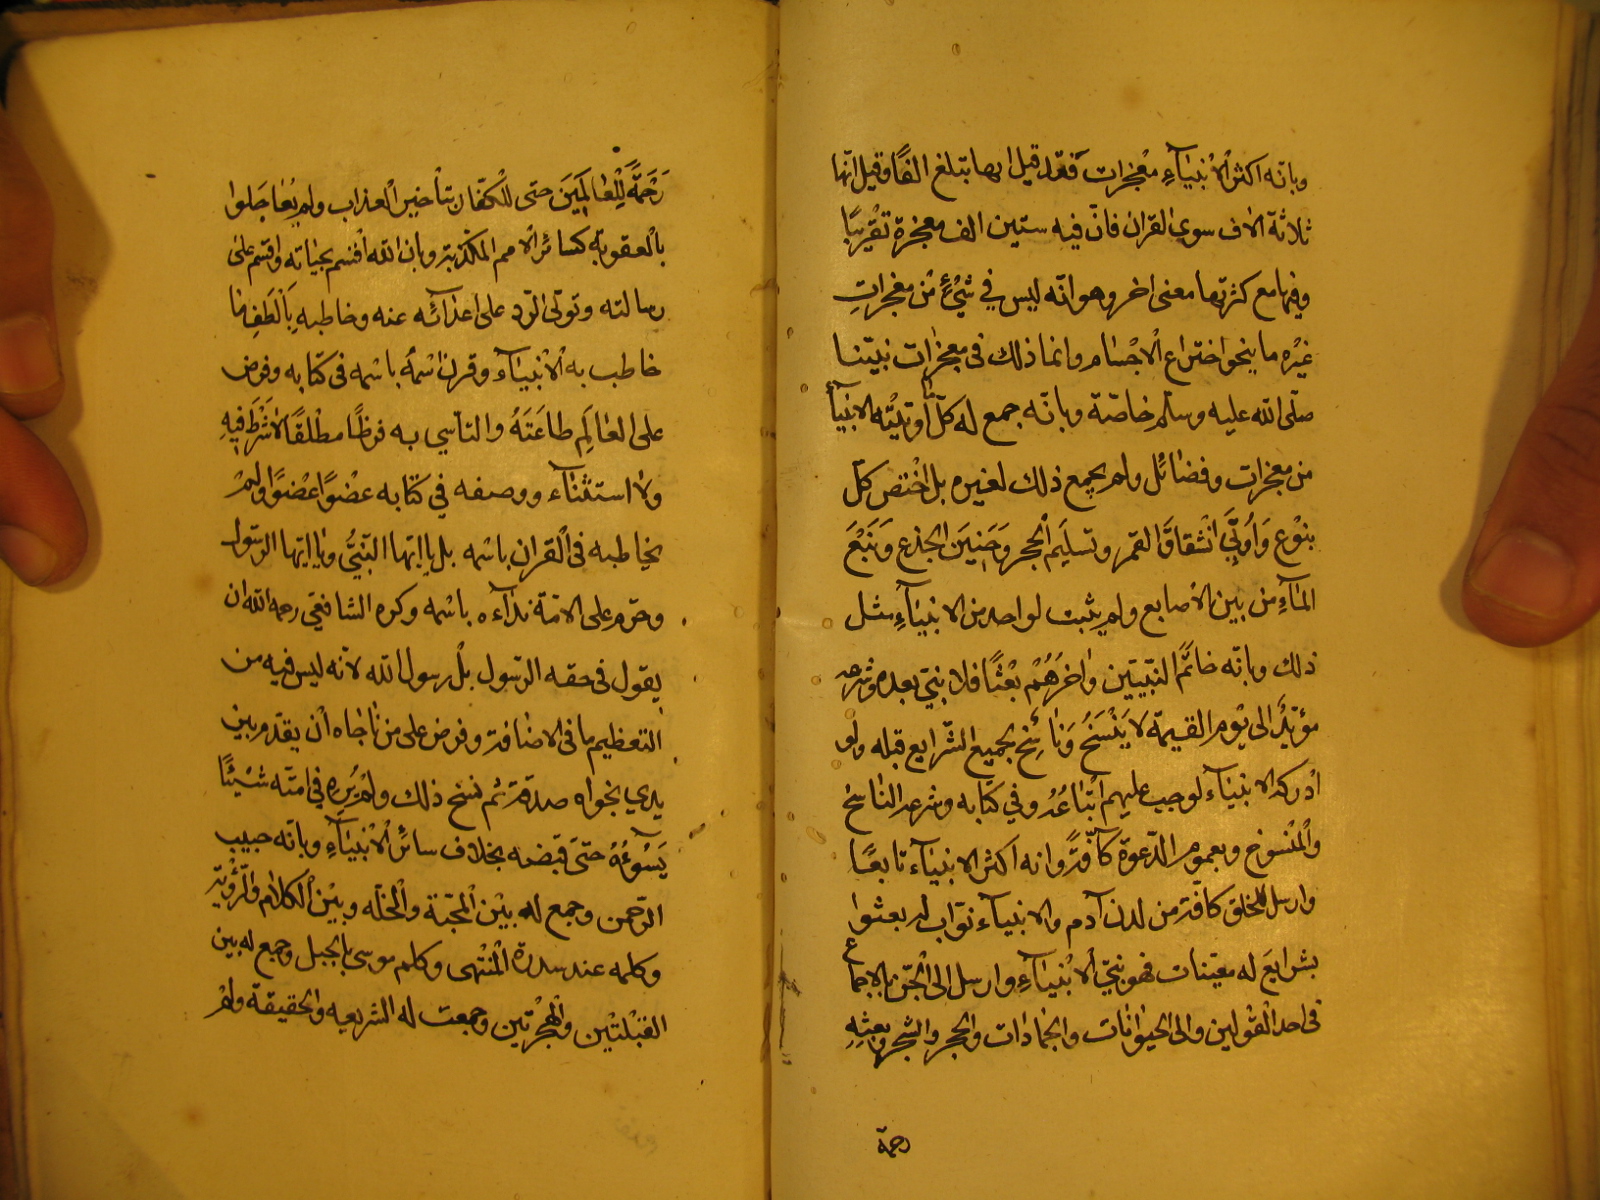 وبانّه اكثر الانبيٰآءِ معْجزات فقد قيل انها تبلغ الفًا وقيل انّها
ثلاثة الاف سوي القران فانّ فيه ستين الف معجزة تقْريبًا
وفيها مع كثرتها معنى اخر وهو انّه ليس في شيْءٍ مْن معجزاتِ
غيْره ما ينحوا ختراع الْاجْسٰام وانما ذلك في معجزات نبيّنا
صلّى الله عليه وسلّم خاصّة وبانّه جمع له كلّ ما اوتيتْه الانبيآءُ
من معجزات وفضائل ولم يجمع ذلك لغيره بل اخْتص كلّ
بنوْع وَاُوتِيَ انْشقاقَ القمر وتسليَم الْحجر وحَنِينَ الجذع وَنَبْعَ
المآءِ من بين الاصابع ولم يثبت لواحد من الانبيٰآءِ مثل
ذلك وبانّه خاتَم النّبيّين واٰخرُهُمْ بعْثًا فلا نبيّ بعده وشرعه
مؤبّدٌ الى يوْم القيمة لا يَنْسَخُ وَنٰاسِخ لجميع الشّرايع قبله ولو
ادْركه الانبيٰآء لوجب عليهم اتّباعُهُ وفي كتابه وشرعه الناسخ
والْمنْسوخ وبعموم الدّعوة كآفّةً وانه اكثر الانبيٰآء تابعًا
وارسل للخلق كافّة من لدن آدم والانبيآء نوّاب له بعثوا
بشرايعَ له معيّنات فهو نبيّ الانْبيٰآءِ وارسل الى الْجنّ بالاجماع
في احد الْقوْلين والى الحيوٰانات والجمادٰات والحجر والشجر وبعثِهِ
رحمة
رَحْمَةً لِلْعٰالَمِينَ حتى للكفّار بتأخير الْعذاب ولم يُعٰاجَلوا
بالْعقوبة كسائر الامم المكذّبة وبان الله اقْسم بحيٰاته واقْسم على
رسالته وتولّى الرّد على اعدٰآئه عنه وخاطبه بِاَلْطَفِ مٰا
خاطب به الانْبيٰآء وقرن اسْمهُ باسْمه في كتابه وفرض
على العٰالَمِ طاعَتَهُ والتأسّي به فرضًا مطْلقًا لا شَرْطَ فيهِ
ولا استثْنآء ووصفه في كتابه عضْوًا عضْوًا ولمْ
يخاطبه في الْقرانِ باسْمه بل يا ايّها النّبيُّ ويا ايّها الرسّول
وحرّم على الامّة ندٰآءه باسْمه وكره الشافعيّ رحمه الله ان
يقول في حقه الرّسول بلْ رسول الله لانّه ليس فيه من
التعظيم ما في الاضافة وفرض على من نٰاجٰاه انْ يقدّم بين
يدي نجواه صدقة ثم نسخ ذلك ولمْ يُرِهِ في امّته شيْئًا
يَسُوْءُهُ حتىّ قبضه بخلاف سائر الْانْبيٰآءِ وبانّه حبيب
الرّحمن وجمع له بيْن المْحبّة والْخلّه وبيْن الْكلام والرّؤْية
وكلمه عند سدرة الْمنْتهى وكلم موسى بالجبل وجمع له بين
القبْلتيْن والْهجْرتيْن وجمعت له الشريعه والحقيقة ولمْ